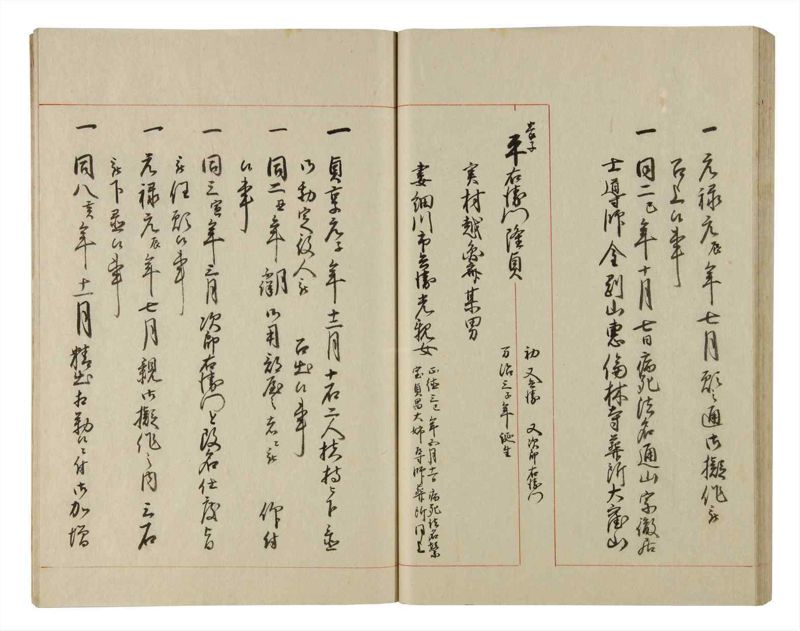 一 元禄元辰年七月願之通御擬作被
召上候事
一 同二巳年十月七日病死法名通山宗徹居
士導師金剛山恵倫林寺葬所大窪山
養子
平右衛門隆貞
初又兵衛 又次郎右衛門
万治三子年誕生
実村越兵衛某男
妻細川市兵衛光親女
正徳三巳年 月 日病死法名
宝貞 大姉導師葬所同上
一 貞享元子年十二月十石二人扶持被下置
御勘定役人被 召出候事
一 同二丑年 月 御用部屋 被 仰付
候事
一 同三寅年三月次郎右衛門と改名仕度旨
被任願候事
一 元禄元辰年七月親御擬作之内三石
被下置候事
一 同八亥年十二月精出相勤候ニ付御加増